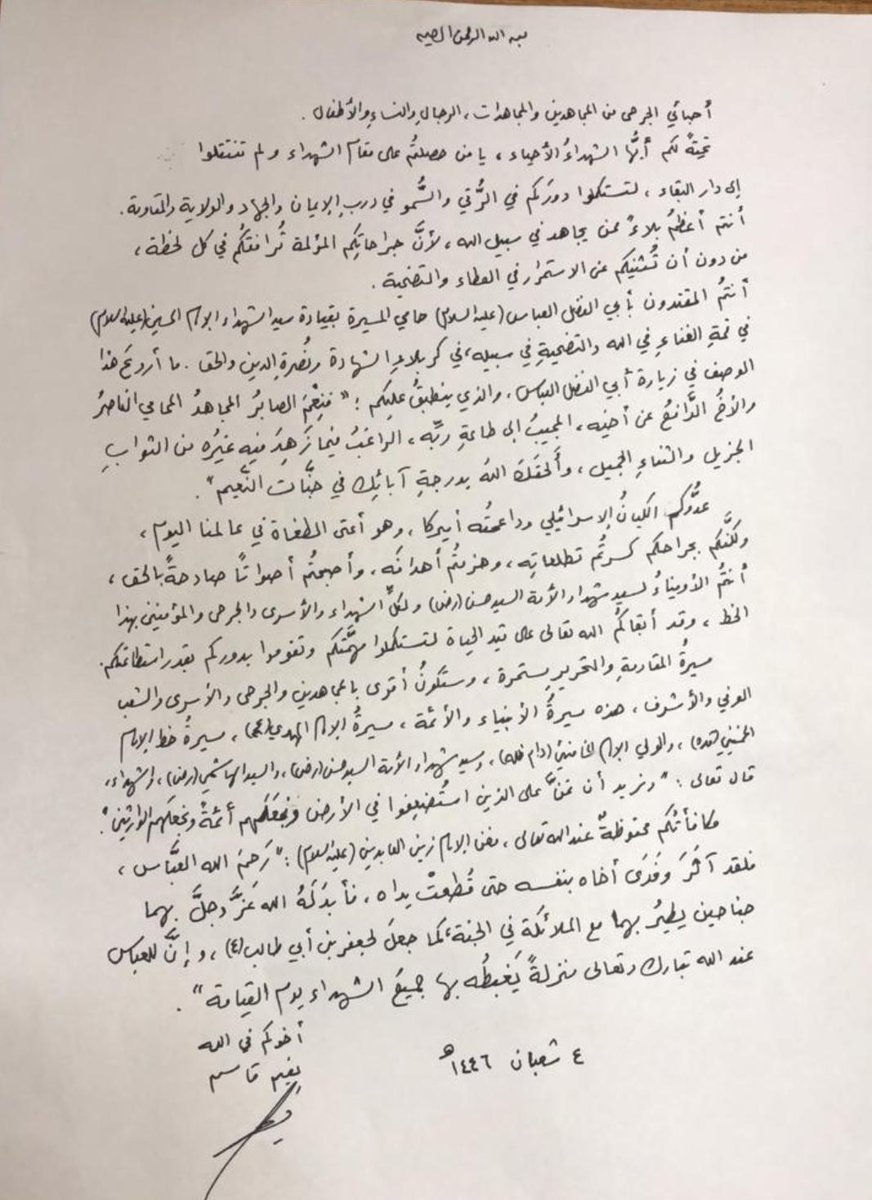 بسم الله الرحمن الرحيم
أحبائي الجرحى من المجاهدين والمجاهدات، الرجال والنساء والأطفال.
تحيَّةً لكم أيُّها الشهداءُ الأحياء، يا من حصلتُم على مقام الشهداء ولم تنتقلوا
إلى دار البقاء، لتستكملوا دورَكم في الرُّقي والسُّمو في دربِ الإيمان والجهاد والولاية والمقاومة.
أنتم أعظمُ بلاءً ممن يجاهد في سبيل الله، لأنَّ جراحاتِكم المؤلمة تُرافقُكم في كل لحظة،
من دون أن تُثنيكم عن الاستمرار في العطاء والتضحية.
أنتُم المقتدون بأبي الفضل العباس (عليه السلام) حامي المسيرة بقيادة سيد الشهداء الإمام الحسين (عليه السلام)
في قمةِ الفناءِ في الله والتضحيةِ في سبيله، في كربلاءِ الشهادة ونُصرةِ الدين والحق. ما أروعَ هذا
الوصف في زيارة أبي الفضل العباس، والذي ينطبقُ عليكم: "فنِعْمَ الصابرُ المجاهدُ المحامي الناصرُ
والأخُ الدَّافعُ عن أخيه، المجيبُ إلى طاعةِ ربِّه، الراغبُ فيما زَهِدَ فيه غيرُه من الثوابِ
الجزيل والثناءِ الجميل، وألحقَكَ اللهُ بدرجةِ آبائِك في جنَّات النَّعيم".
عدُّوكم الكيانُ الإسرائيلي وداعمتُه أميركا، وهو أعتى الطغاة في عالمنا اليوم،
ولكنَّكم بجراحكم كسرتُم تطلعاتِه، وهزمتُم أهدافَه، وأصبحتُم أصواتًا صادحةً بالحق،
أنتُم الأوفياءُ لسيد شهداء الأمة السيد حسن (رض) ولكلِّ الشهداء والأسرى والجرحى والمؤمنين بهذا
الخط، وقد أبقاكُم الله تعالى على قيد الحياة لتستكملوا مهمَّتكم وتقوموا بدوركم بقدر استطاعتكم.
مسيرةُ المقاومةِ والتحريرِ مستمرة، وستكونُ أقوى بالمجاهدين والجرحى والأسرى والشعب
الوفي والأشرف، هذه مسيرةُ الأنبياء والأئمة، مسيرةُ الإمام المهدي (عج)، مسيرةُ خط الإمام
الخميني (قده)، والولي الإمام الخامنئي (دام ظله)، وسيد شهداء الأمة السيد حسن (رض)، والسيد الهاشمي (رض)، والشهداء،
قال تعالى: "ونريد أن نمنَّ على الذين استُضعِفوا في الأرض ونجعلَهم أئمةً ونجعلَهم الوارثين".
مكافأتُكم محفوظةٌ عند الله تعالى، فعن الإمام زين العابدين (عليه السلام): "رَحِمَ الله العبَّاس،
فلقد آثَرَ وفَدَى أخاه بنفسه حتى قُطعتْ يداه، فأبدَلَهُ الله عَزَّ وجلَّ بهما
جناحين يطيرُ بهما مع الملائكة في الجنة، كما جعلَ لجعفر بن أبي طالب (ع)، وإنَّ للعباس
عند الله تبارك وتعالى منزلةً يَغبطُه بها جميعُ الشهداء يوم القيامة".
أخوكم في الله
نعيم قاسم
٤ شعبان ١٤٤٦هـ